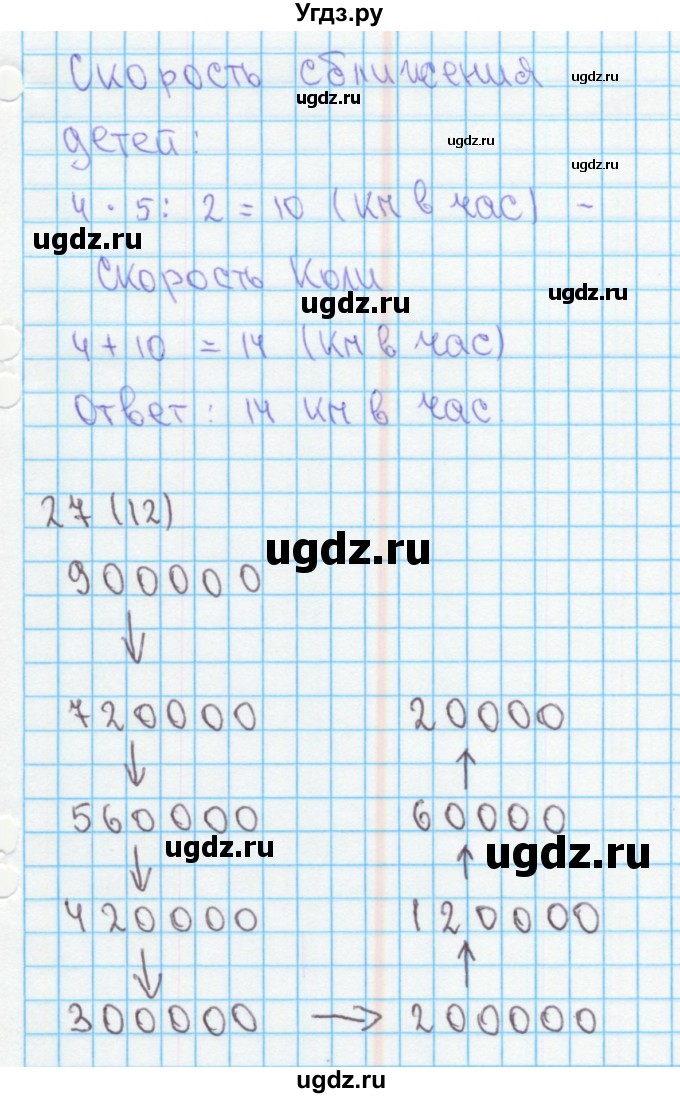 Угдз.ру
Скорость сближения
ugdz.ru
ugdz.ru
детей:
ugdz.ru
ugdz.ru
4 · 5 : 2 = 10 (км в час) -
ugdz.ru
Скорость Коли
ugdz.ru
ugdz.ru
4 + 10 = 14 (км в час)
Ответ: 14 км в час
27 (12)
ugdz.ru
900000
↓
720000 20000
↓ ↑
560000 60000
ugdz.ru
ugdz.ru
↓ ↑
420000 120000
↓ ↑
300000 → 200000
ugdz.ru